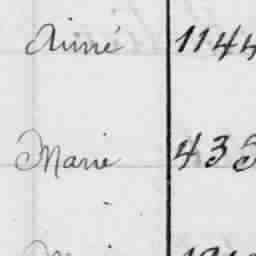 Aimé 1144
Marie 435